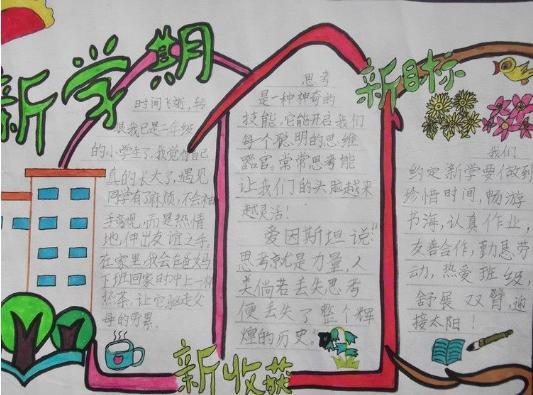 新学期
时间飞逝,转
眼我已是一年级
的小学生了,我觉得自己
真的长大了,遇见
同学有麻烦,不会袖
手旁观,而是热情
地伸出友谊之手,
在家里,我会在爸妈
下班回家时冲上一杯
热茶,让它驱走父
母的劳累。
思考
是一种神奇的
技能,它能开启我们
每个聪明的思维
器官。常常思考能
让我们的头脑越来
越灵活!
爱因斯坦说:"
思考就是力量,人
类倘若丢失思考
便丢失了整个辉
煌的历史。"
新收获
新目标
我们
约定新学要做到
珍惜时间,畅游
书海,认真作业,
友善合作,勤恳劳
动,热爱班级,
舒展双臂,迎
接太阳!